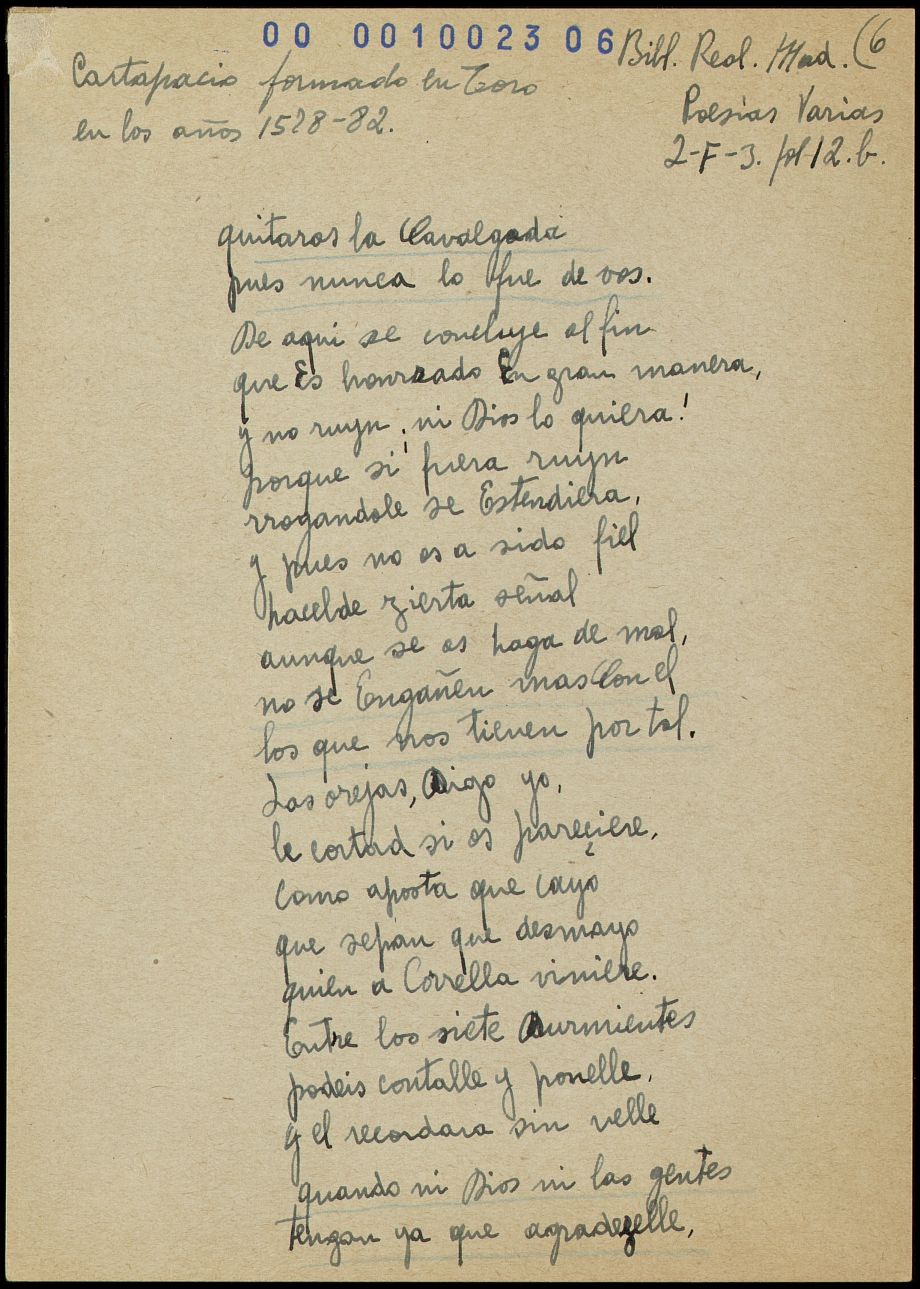 00 0010023 06
Bibl. Real. Mad. (6
Cartapacio formado en Toro
en los años 1578-82.
Poesías Varias
2-F-3. fol 12.b.
quitaros la Cavalgada
pues nunca lo fue de vos.
De aqui se concluye al fin
que Es honrrado En gran manera,
y no ruyn, ni Dios lo quiera!
porque si fuera ruyn
rrogandole se Estendiera,
y pues no os a sido fiel
hacelde zierta señal
aunque se os haga de mal,
no se Engañen mas Con el
los que nos tienen por tal.
Las orejas, digo yo,
le cortad si os pareçiere,
como aposta que cayo
que sepan que desmayo
quien a Corella viniere.
Entre los siete durmientes
podeis contalle y ponelle,
y el recordara sin velle
quando ni Dios ni las gentes
tengan ya que agradezelle,